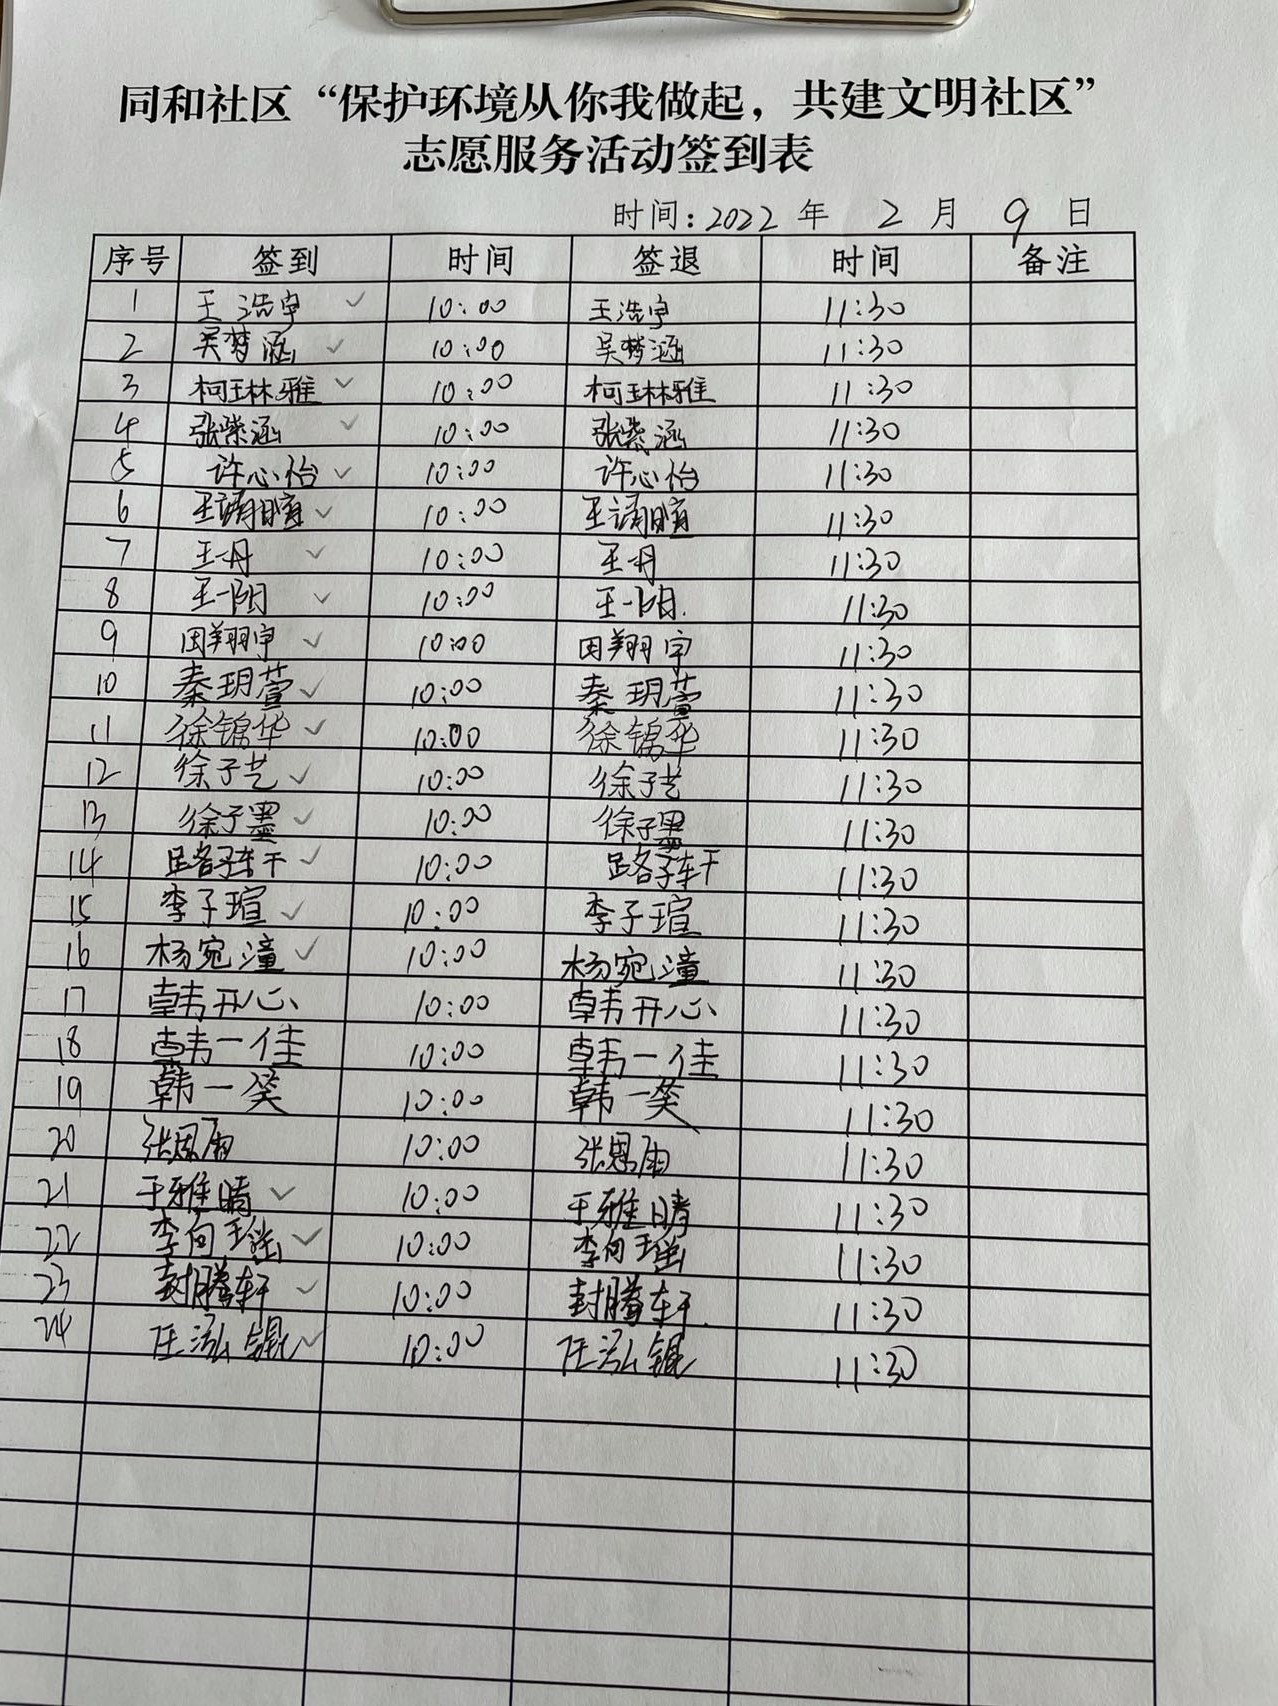 同和社区“保护环境从你我做起，共建文明社区”
志愿服务活动签到表
时间：2022 年 2 月 9 日
序号 签到 时间 签退 时间 备注
1 王浩宇 ✓ 10:00 王浩宇 11:30
2 吴梦涵 ✓ 10:00 吴梦涵 11:30
3 柯琳雅 ✓ 10:00 柯琳雅 11:30
4 张紫涵 ✓ 10:00 张紫涵 11:30
5 许心怡 ✓ 10:00 许心怡 11:30
6 ✓ 10:00 11:30
7 王丹 ✓ 10:00 王丹 11:30
8 王一阳 ✓ 10:00 王一阳. 11:30
9 田翔宇 ✓ 10:00 田翔宇 11:30
10 秦玥萱 ✓ 10:00 秦玥萱 11:30
11 徐锦华 ✓ 10:00 徐锦华 11:30
12 徐子艺 ✓ 10:00 徐子艺 11:30
13 徐子墨 ✓ 10:00 徐子墨 11:30
14 路子轩 ✓ 10:00 路子轩 11:30
15 李子瑄 ✓ 10:00 李子瑄 11:30
16 杨宛潼 ✓ 10:00 杨宛潼 11:30
17 韩开心 10:00 韩开心 11:30
18 韩一佳 10:00 韩一佳 11:30
19 韩一笑 10:00 韩一笑 11:30
20 张恩雨 10:00 张恩雨 11:30
21 于雅晴 ✓ 10:00 于雅晴 11:30
22 李向瑶 ✓ 10:00 李向瑶 11:30
23 封腾轩 ✓ 10:00 封腾轩. 11:30
24 任泓锟 ✓ 10:00 任泓锟 11:30